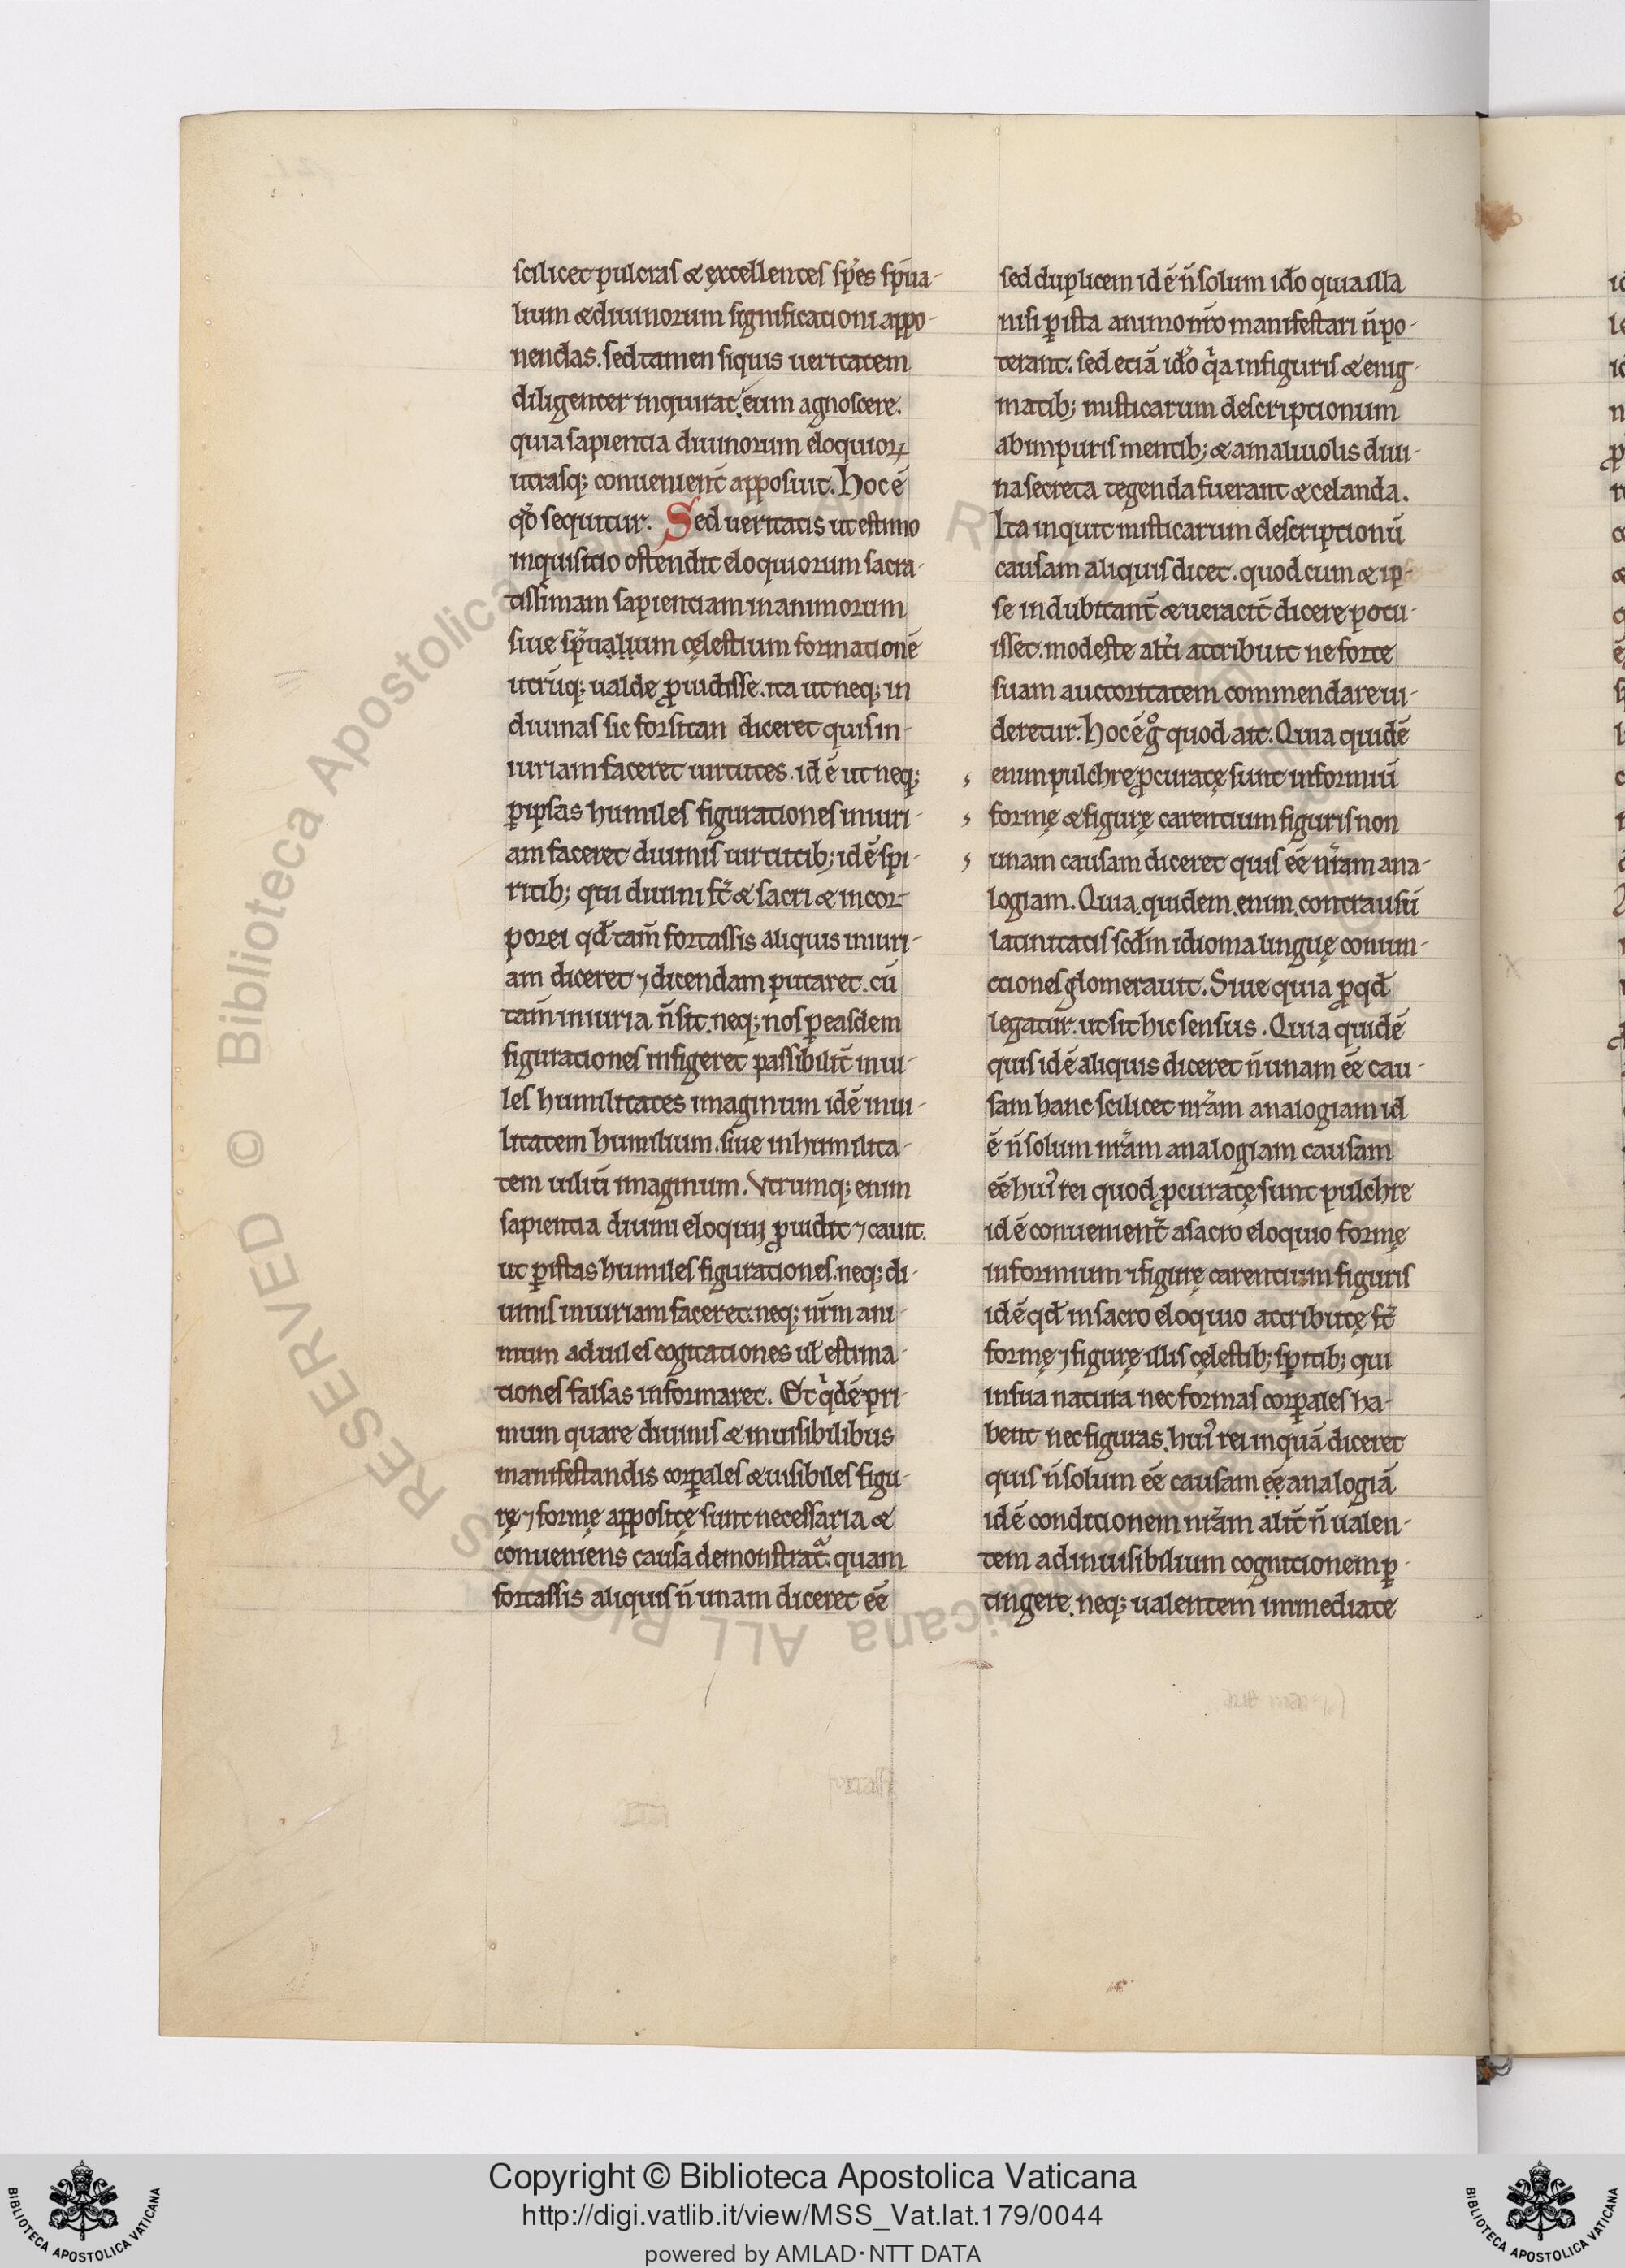 scilicet pulcras & excellentes sp̃es sp̃ua-
lium & diuinorum significationi appo-
nendas. sed tamen siquis ueritatem
diligenter inquirat. eum agnoscere.
quia sapientia diuinorum eloquioꝝ
utrasq; conuenient̃ apposuit. Hoc ē
qđ sequitur. Sed ueritatis ut estimo
inquisitio ostendit eloquiorum sacra-
tissimam sapientiam in animorum
siue sp̃ualium cęlestium formationē
utrūq; ualde ꝓuidisse. ita ut neq; in
diuinas sic forsitan diceret quis in-
iuriam faceret uirtutes. id ē ut neq;
ꝑ ipsas humiles figurationes iniuri-
am faceret diuinis uirtutib; id ē spi-
ritib; qui diuini st̃ & sacri & incor-
porei qđ tam̃ fortassis aliquis iniuri-
am diceret ⁊ dicendam putaret. cū
tam̃ iniuria ñ sit. neq; nos ꝑ easdem
figurationes infigeret passibilit̃ in ui-
les humilitates imaginum id ē in ui-
litatem humilium. siue in humilita-
tem uiliū imaginum. Vtrumq; enim
sapientia diuini eloquij ꝓuidit ⁊ cauit.
ut ꝑ istas humiles figurationes. neq; di-
uinis iniuriam faceret. neq; nr̃m ani-
mum ad uiles cogitationes uł estima-
tiones falsas informaret. Et qͥdē pri-
mum quare diuinis & inuisibilibus
manifestandis corꝑales & uisibiles figu-
rę ⁊ formę appositę sunt necessaria &
conueniens causa demonstrat̃. quam
fortassis aliquis ñ unam diceret eē
sed duplicem id ē ñ solum ido quia illa
nisi ꝑ ista animo nr̃o manifestari ñ po-
terant. sed etiā ido qͥa in figuris & enig-
matib; misticarum descriptionum
ab inpuris mentib; & a maliuolis diui-
na secreta tegenda fuerant & celanda.
Ita inquit misticarum descriptionū
causam aliquis dicet. quod cum & ip-
se indubitant̃ & ueracit̃ dicere potu-
isset. modeste alt̃i attribuit ne forte
suam auctoritatem commendare ui-
deretur. Hoc ē gͦ quod ait. Quia quidē
enim pulchrę ꝓcuratę sunt informiū
formę & figurę carentium figuris non
unam causam diceret quis eē nr̃am ana-
logiam. Quia quidem enim contra usū
latinitatis scđm idioma linguę coniun-
ctiones glomerauit. Siue quia ꝓ qđ
legatur̃. ut sit hic sensus. Quia quidē
quis id ē aliquis diceret ñ unam eē cau-
sam hanc scilicet nr̃am analogiam id
ē ñ solum nr̃am analogiam causam
eē huiꝰ rei quod ꝓcuratę sunt pulchre
id ē conuenient̃ a sacro eloquio formę
informium ⁊ figurę carentium figuris
id ē qđ in sacro eloquio attributę st̃
formę ⁊ figurę illis cęlestib; sp̃itib; qui
in sua natura nec formas corꝑales ha-
bent nec figuras. huiꝰ rei inquā diceret
quis ñ solum eē causam eē analogiā
id ē conditionem nr̃am alit̃ ñ ualen-
tem ad inuisibilium cognitionem ꝑ-
tingere. neq; ualentem immediate
Copyright © Biblioteca Apostolica Vaticana
http://digi.vatlib.it/view/MSS_Vat.lat.179/0044
powered by AMLAD·NTT DATA